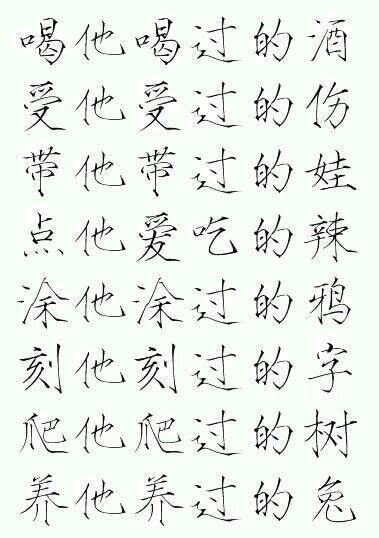 喝他喝过的酒
受他受过的伤
带他带过的娃
点他爱吃的辣
涂他涂过的鸦
刻他刻过的字
爬他爬过的树
养他养过的兔